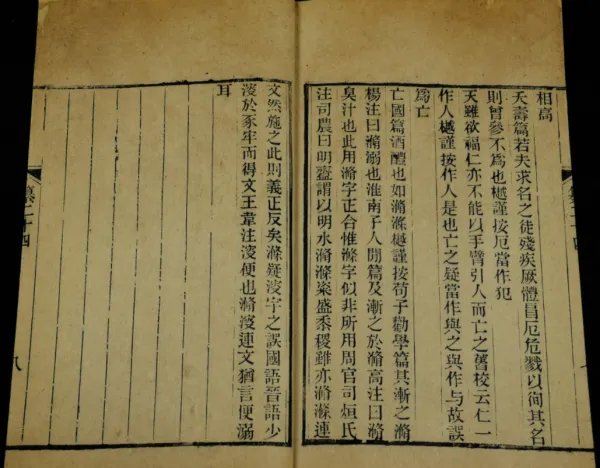 相高
夭壽篇若夫求名之徒殘疾厥體冒厄危戮以徇其名
則曾參不爲也樾謹按厄當作犯
天雖欲福仁亦不能以手臂引人而亡之舊校云仁一
作人樾謹按作人是也亡之疑當作與之與作与故誤
爲亡
亡國篇酒醴也如滫滌樾謹按荀子勸學篇其漸之滫
楊注曰滫溺也淮南子人閒篇及漸之於滫高注曰滫
臭汁也此用滫字正合惟滌字似非所用周官司烜氏
注司農曰明齍謂以明水滫滌粢盛黍稷雖亦滫滌連
文然施之此則義正反矣滌疑溲字之誤國語晉語少
溲於豕牢而得文王韋注溲便也滫溲連文猶言便溺
耳
纂二十四
八